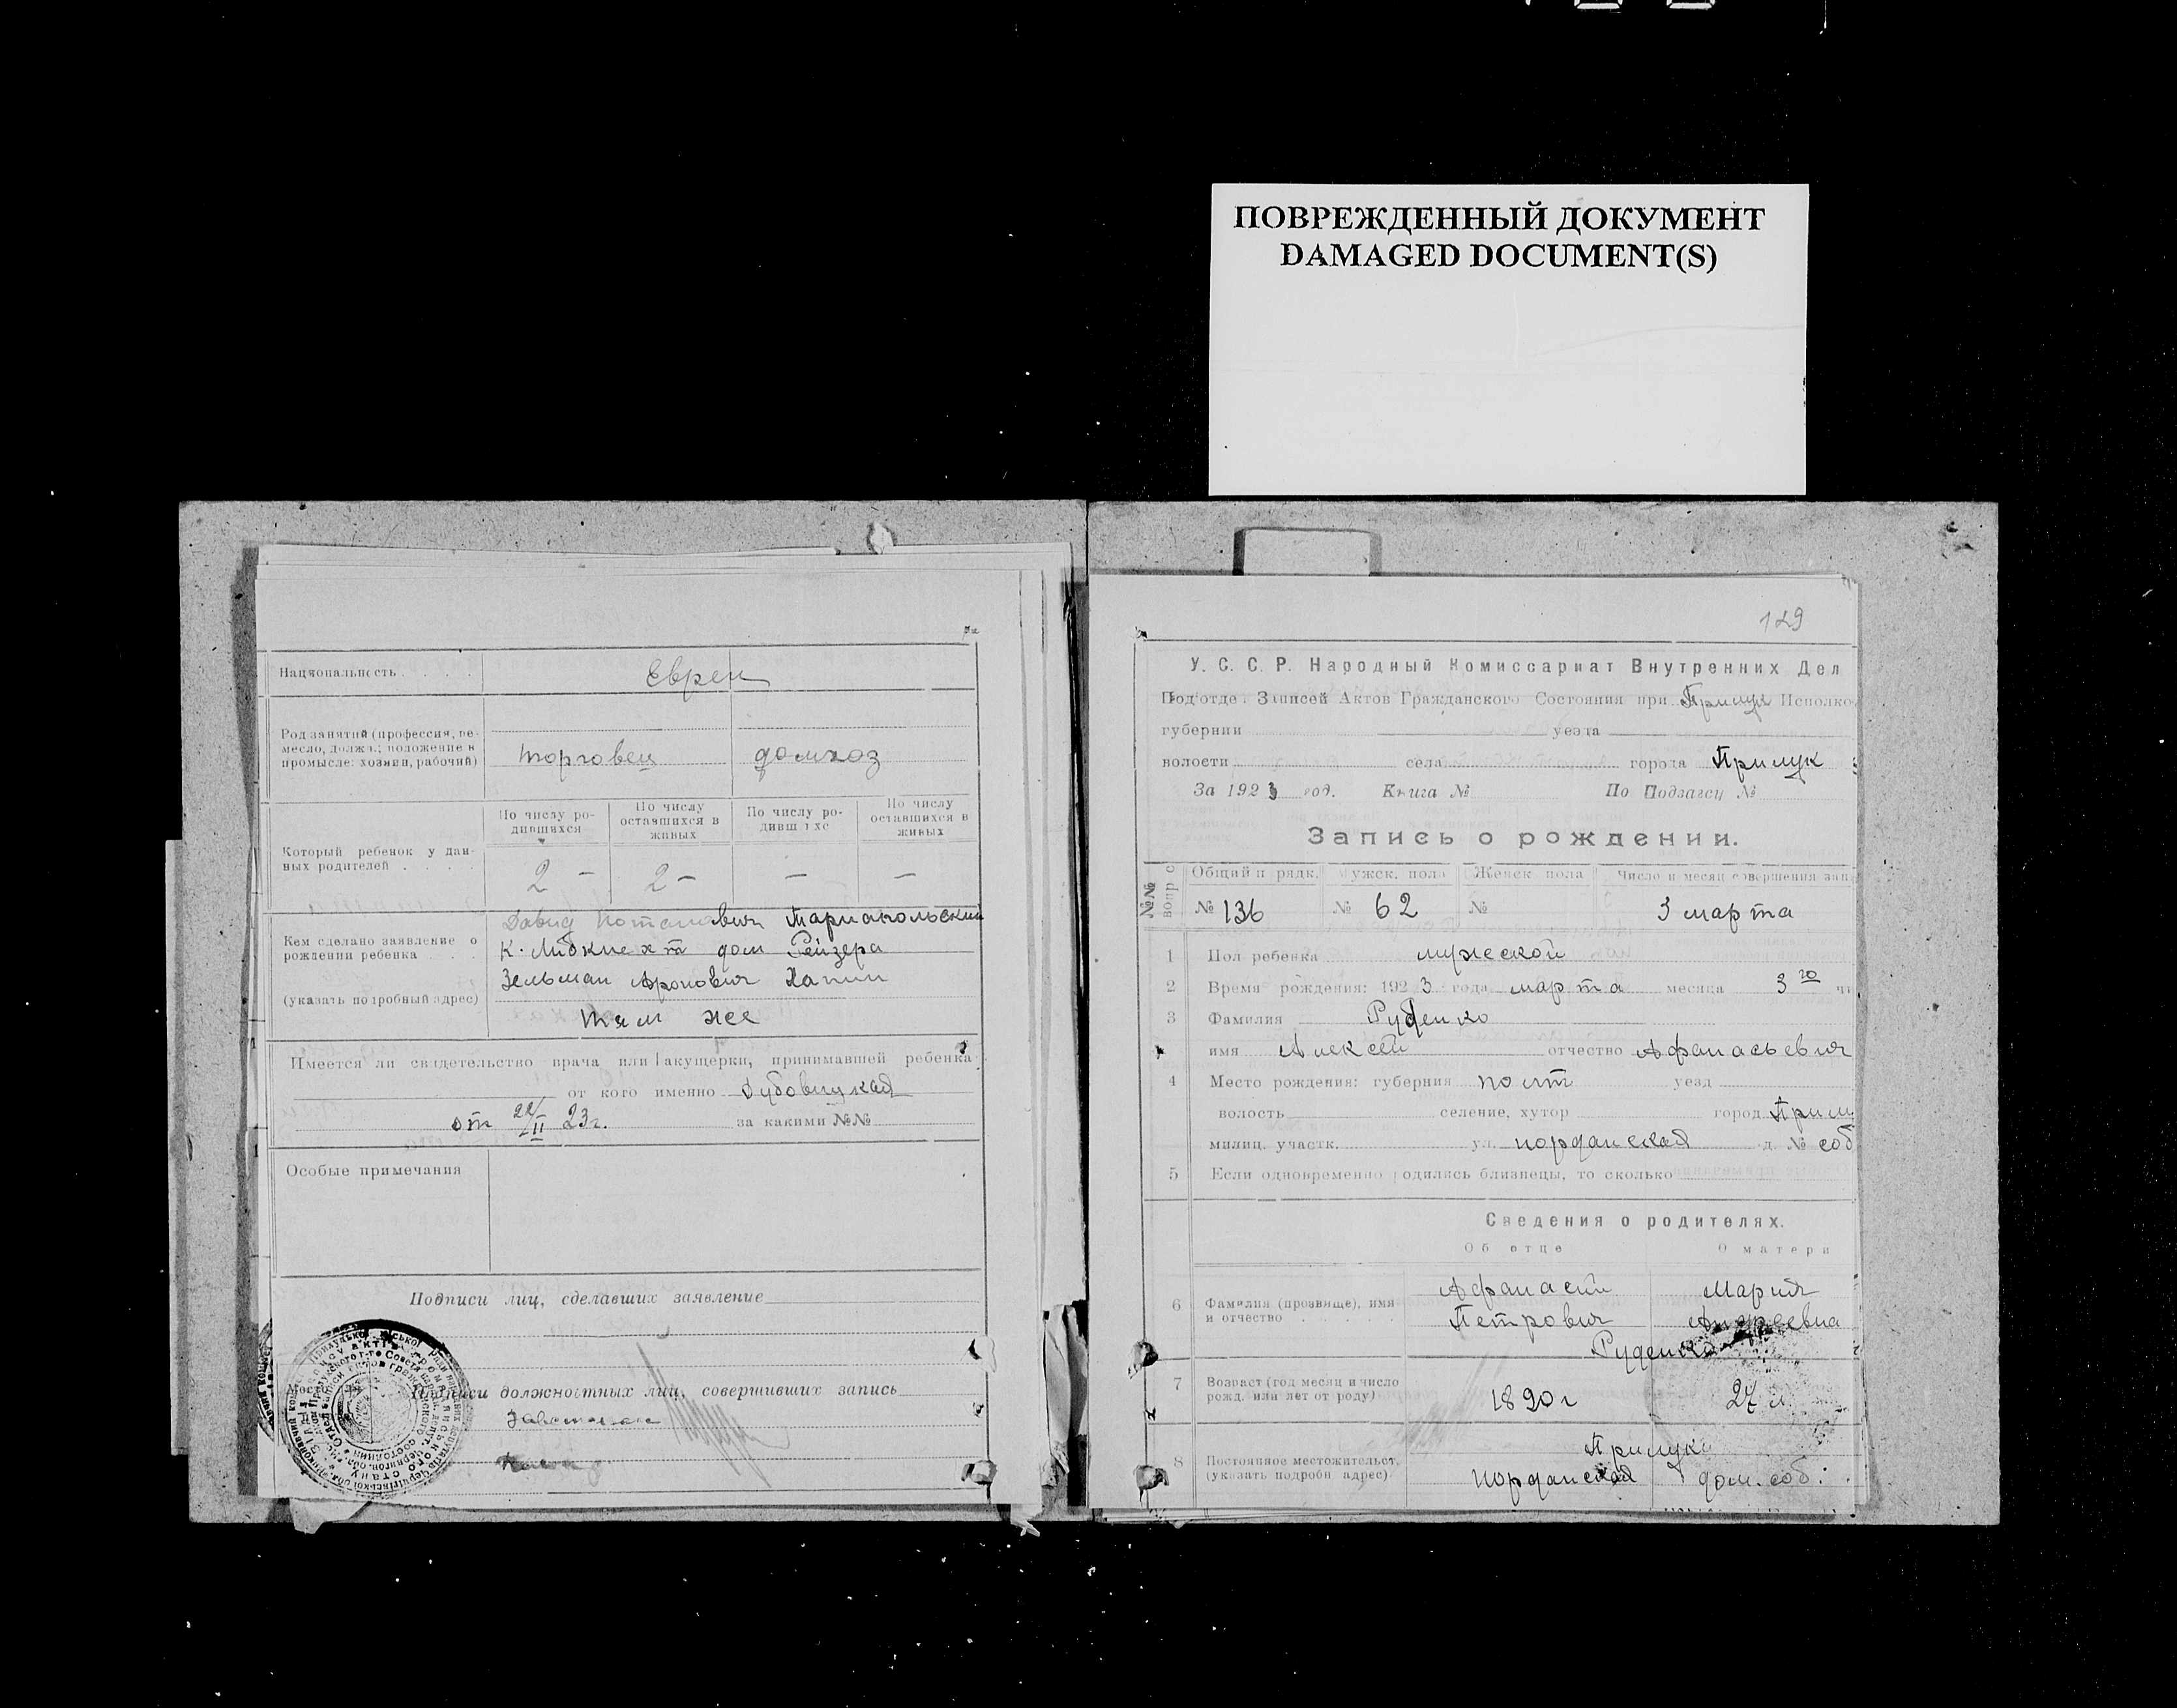 ПОВРЕЖДЕННЫЙ ДОКУМЕНТ
DAMAGED DOCUMENT(S)
Национальность
Евреи
Род занятий (профессия, ремесло, должн.; положение в промысле: хозяин, рабочий)
торговец домхоз
По числу родившихся
По числу оставшихся в живых
По числу родившихс
По числу оставшихся в живых
Который ребенок у данных родителей
2 — 2 — — —
Кем сделано заявление о рождении ребенка
(указать подробный адрес)
Давид Мариапольский
К. Либкнехт дом Рейзера
Зельман Аронович Хапин
там же
Имеется ли свидетельство врача или акушерки, принимавшей ребенка
от кого именно Дубовицкая
от 22/II 23г. за какими №№
Особые примечания
Подписи лиц, сделавших заявление
Подписи должностных лиц, совершивших запись
129
У. С. С. Р. Народный Комиссариат Внутренних Дел
Подотдел Записей Актов Гражданского Состояния при Прилук Исполко
губернии уезда
волости села города Прилук
За 1923 год. Книга № По Подзагсу №
Запись о рождении.
№№ вопрос
Общий п рядк. Мужск. пола Женск пола Число и месяц совершения зап
№ 136 № 62 № 3 марта
1 Пол ребенка мужской
2 Время рождения: 1923 года марта месяца 3го чи
3 Фамилия Руденко
имя Алексей отчество Афанасьевич
4 Место рождения: губерния полт уезд
волость селение, хутор город Прилу
милиц. участк. ул. иорданская д. № соб
5 Если одновременно родились близнецы, то сколько
Сведения о родителях.
Об отце О матери
6 Фамилия (прозвище), имя и отчество
Афанасий Мария
Петрович Андреевна
Руденко
7 Возраст (год месяц и число рожд. или лет от роду)
1890г 27 л.
8 Постоянное местожительст. (указать подробн адрес)
Прилуки
иорданская дом. соб.